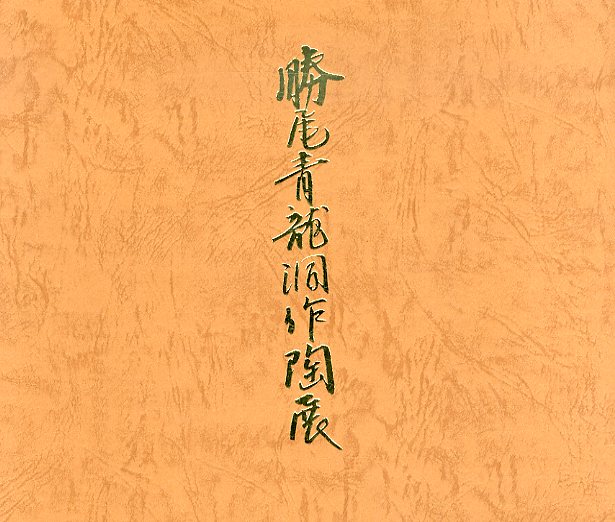 勝尾青龍洞作陶展